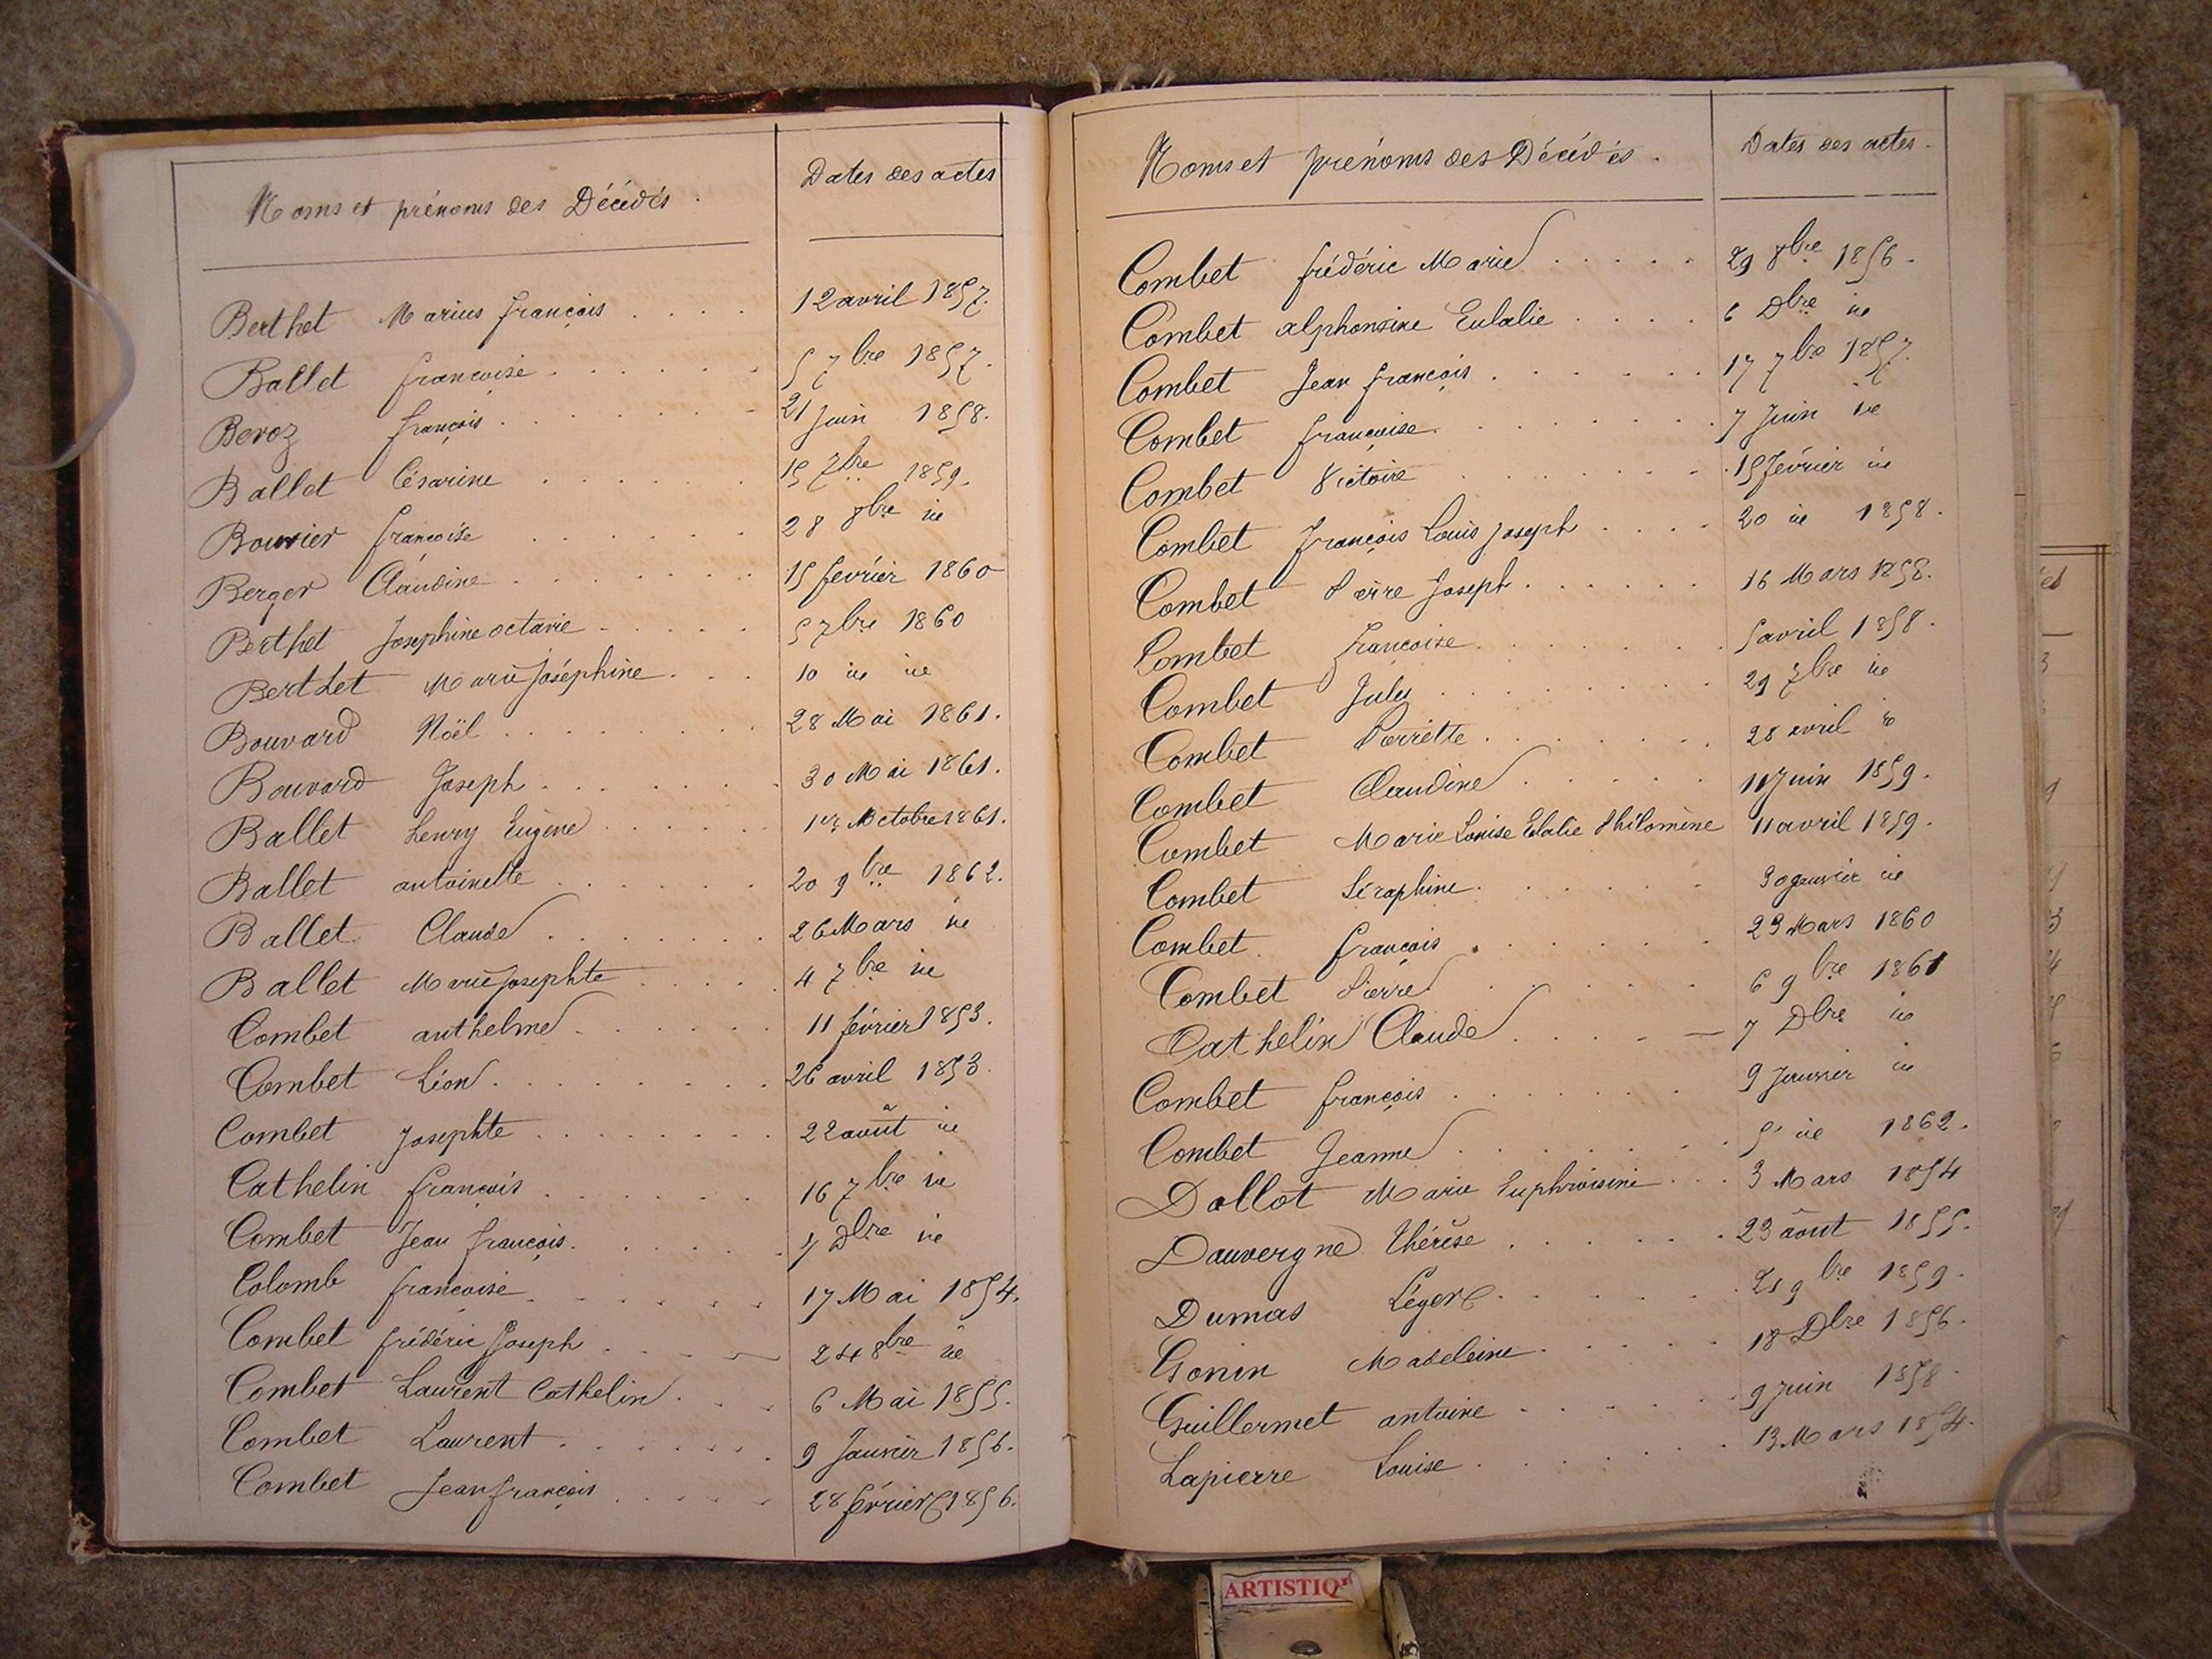 Noms et prénoms des Décédés. Dates des actes
Berthet Marius françois 12 avril 1857.
Ballet francoise 5 7bre 1857.
Beroz françois 21 Juin 1858.
Ballet Césarine 15 7bre 1859.
Bouvier francoise 28 8bre id
Berger Claudine 15 fevrier 1860
Berthet Josephine octavie 5 7bre 1860
Berthet Marie Joséphine 10 id id
Bouvard Noël 28 Mai 1861.
Bouvard Joseph 30 Mai 1861.
Ballet henry Eugène 1er Octobre 1861.
Ballet antoinette 20 9bre 1862.
Ballet Claude 26 Mars id
Ballet Marie Josephte 4 7bre id
Combet anthelme 11 février 1853.
Combet Léon 26 avril 1853.
Combet Josephte 22 août id
Cathelin françois 16 7bre id
Combet Jean françois. 7 Dbre id
Colomb francoise 17 Mai 1854.
Combet frédéric Joseph 24 8bre id
Combet Laurent Cathelin 6 Mai 1855.
Combet Laurent 9 Janvier 1856.
Combet Jean françois 28 février 1856.
Noms et prénoms des Décédés. Dates des actes.
Combet frédéric Marie 29 8bre 1856.
Combet alphonsine Eulalie 6 Dbre id
Combet Jean françois 17 7bre 1857.
Combet françoise 7 Juin id
Combet Victoire 15 février id
Combet François Louis Joseph 20 id 1858.
Combet Pierre Joseph 16 Mars 1858.
Combet Francoise 5 avril 1858.
Combet July 29 7bre id
Combet Pierrette 28 avril id
Combet Claudine 11 Juin 1859.
Combet Marie Louise Elalie Philomène 11 avril 1859.
Combet Séraphine 30 Janvier id
Combet françois 23 Mars 1860
Combet Pierre 6 9bre 1861
Cathelin Claude 7 Dbre id
Combet françois 9 Janvier id
Combet Jeanne 5 id 1862.
Dallot Marie Euphroisine 3 Mars 1854
Dauvergne Thérèse 23 août 1855.
Dumas Léger 21 9bre 1859.
Gonin Madeleine 18 Dbre 1856.
Guillermet antoine 9 Juin 1858.
Lapierre Louise 13 Mars 1854.
ARTISTIQ